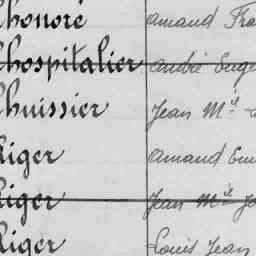 Lhonoré Amand Fra
Lhospitalier André Euge
Lhuissier Jean Mie
Liger Amand Em
Liger Jean Mie Jo
Liger Louis Jean